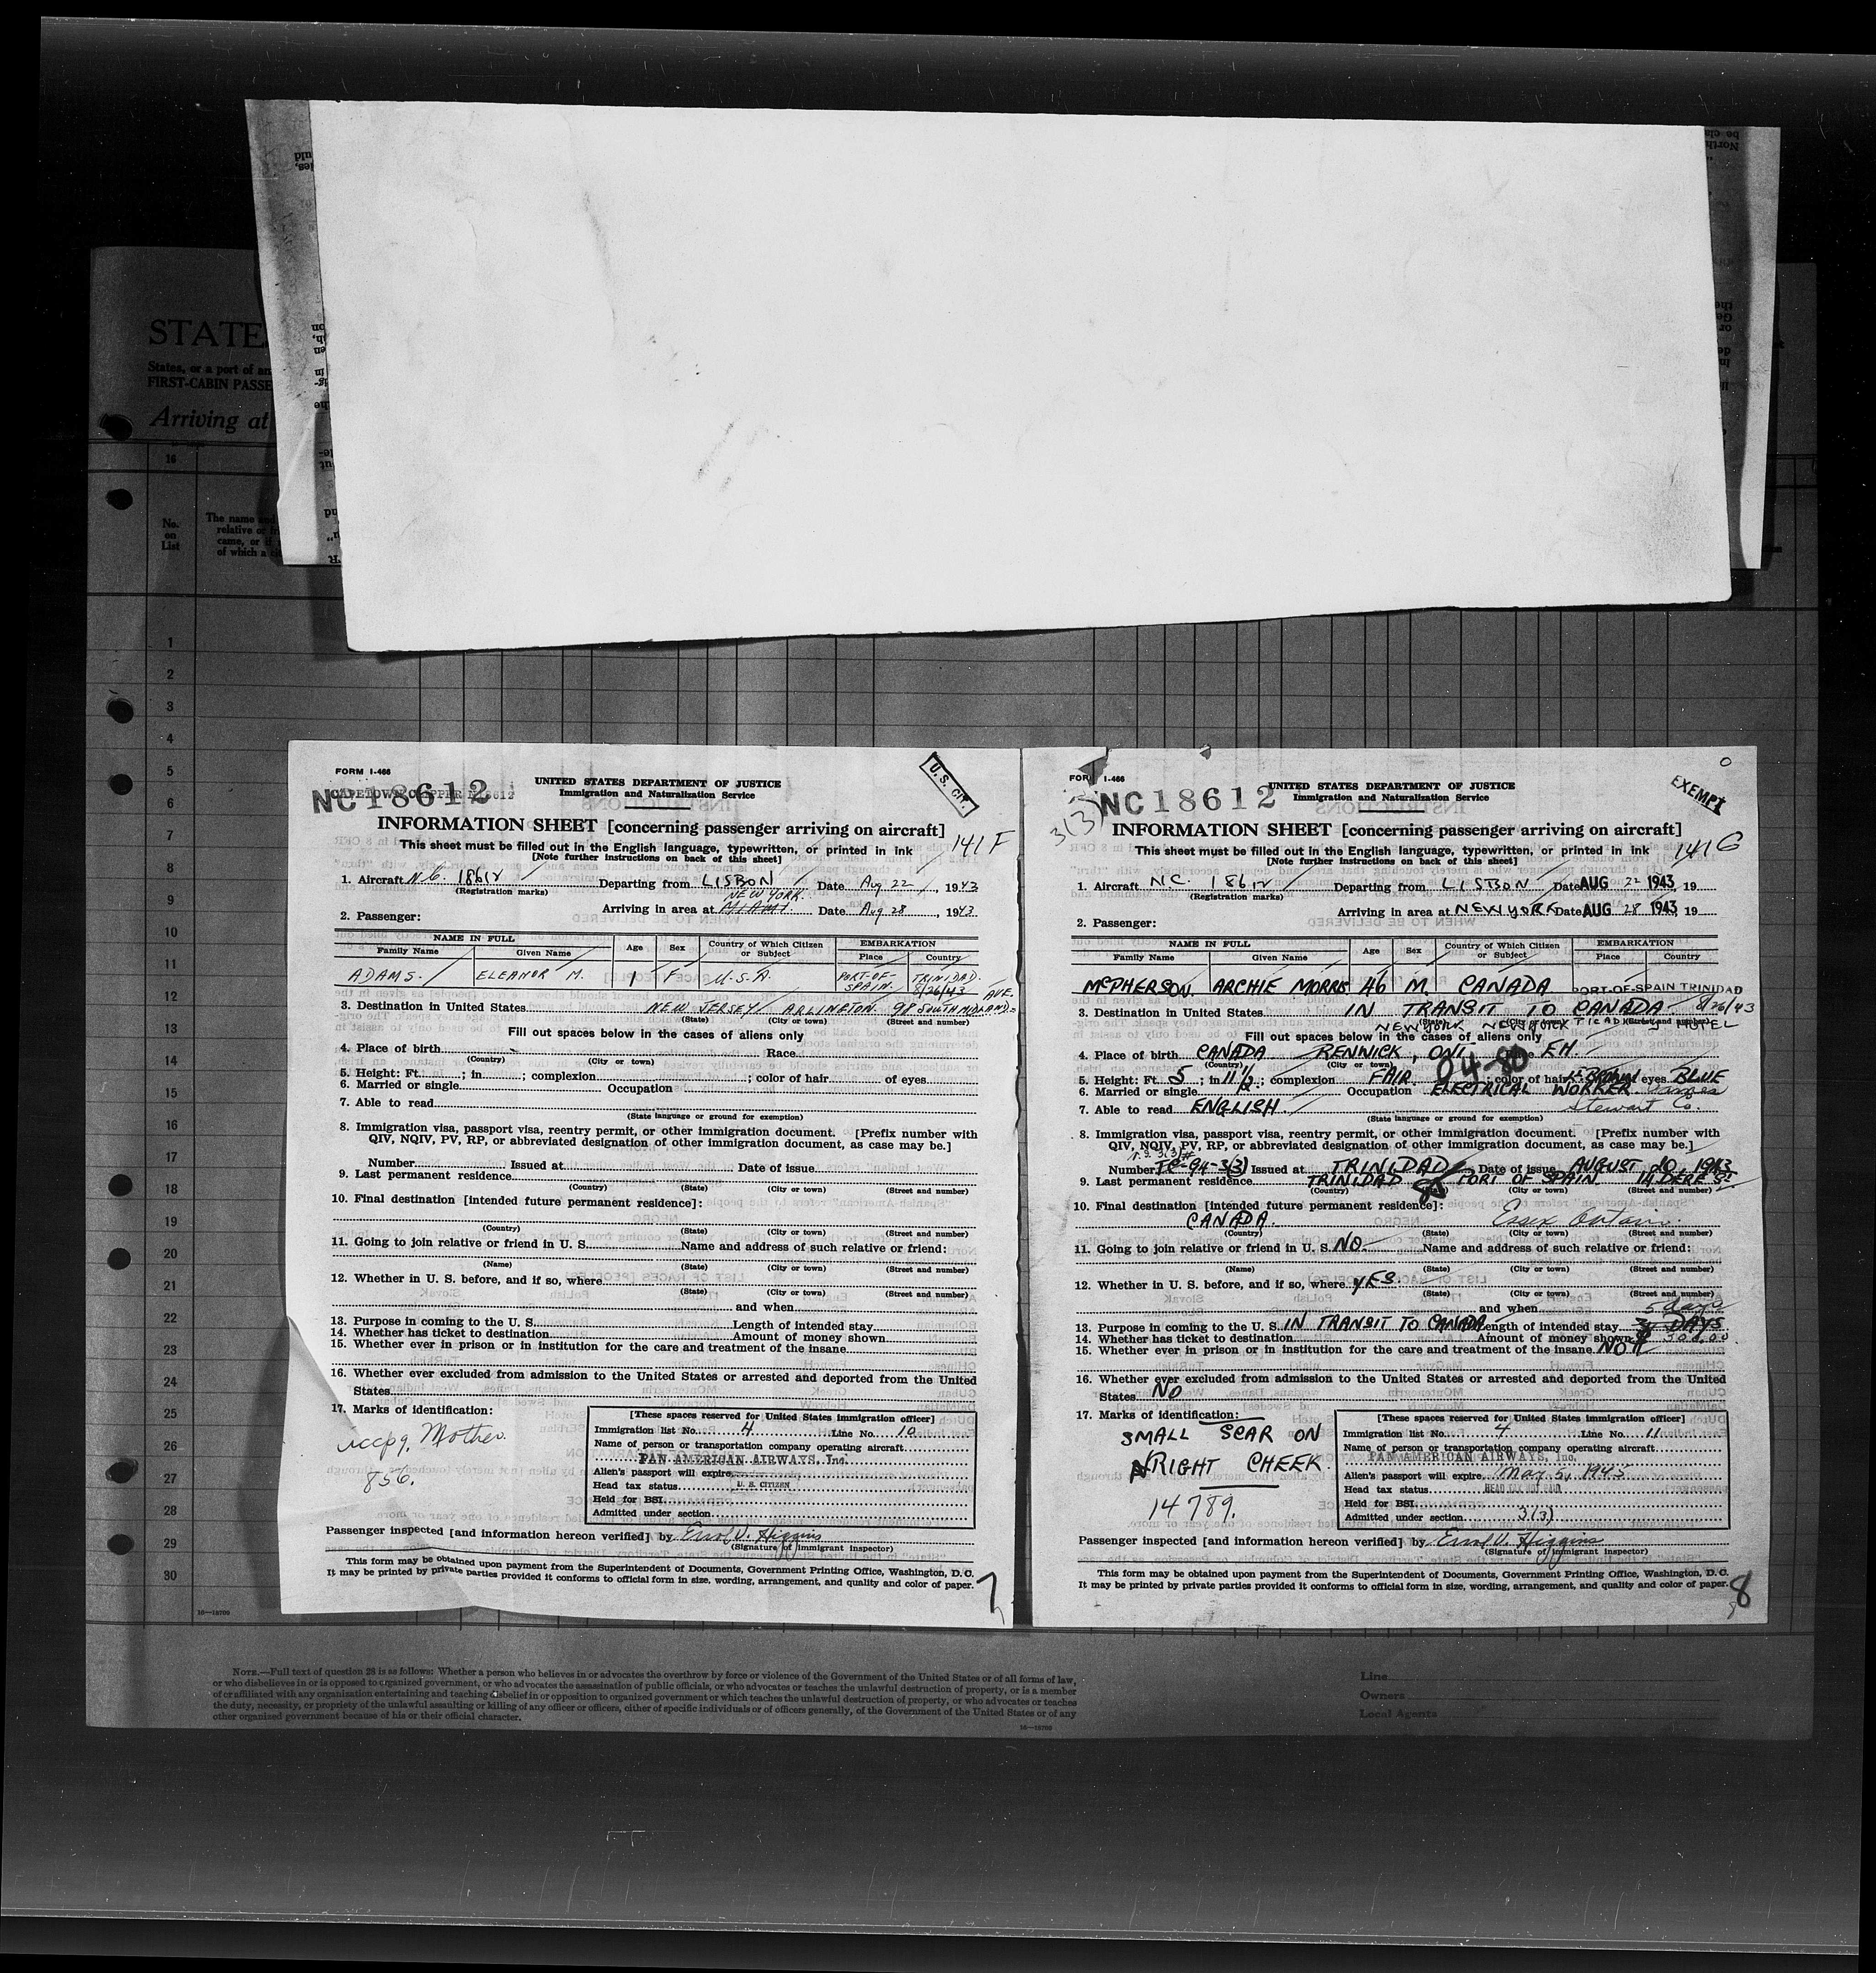 STATE
States, or a port of an
FIRST-CABIN PASSE
Arriving at
16
No.
on
List
The name and
relative or
came, or if
of which a
1
2
3
4
5
6
7
8
9
10
11
12
13
14
15
16
17
18
19
20
21
22
23
24
25
26
27
28
29
30
16—18709
FORM I-466
NC18612
UNITED STATES DEPARTMENT OF JUSTICE
Immigration and Naturalization Service
U. S. CIT.
INFORMATION SHEET [concerning passenger arriving on aircraft]
141 F
This sheet must be filled out in the English language, typewritten, or printed in ink
[Note further instructions on back of this sheet]
1. Aircraft N.C. 18612 Departing from LISBON Date Aug 22, 1943
(Registration marks)
NEW YORK.
Arriving in area at MIAMI. Date Aug 28, 1943
2. Passenger:
NAME IN FULL Age Sex Country of Which Citizen or Subject EMBARKATION
Family Name Given Name Place Country
ADAMS. ELEANOR M. 1 F U.S.A. PORT-OF-SPAIN. TRINIDAD. 8/26/43
3. Destination in United States NEW JERSEY ARLINGTON. 98 SOUTH MIDLAND AVE.
(State) (City or town) (Street and number)
Fill out spaces below in the cases of aliens only
4. Place of birth Race
(Country) (City or town)
5. Height: Ft. ; in. ; complexion ; color of hair of eyes
6. Married or single Occupation
7. Able to read
(State language or ground for exemption)
8. Immigration visa, passport visa, reentry permit, or other immigration document. [Prefix number with
QIV, NQIV, PV, RP, or abbreviated designation of other immigration document, as case may be.]
Number Issued at Date of issue
9. Last permanent residence
(Country) (State) (City or town) (Street and number)
10. Final destination [intended future permanent residence]:
(Country) (State) (City or town) (Street and number)
11. Going to join relative or friend in U. S. Name and address of such relative or friend:
(Name) (State) (City or town) (Street and number)
12. Whether in U. S. before, and if so, where
(State) (City or town) (Street and number)
and when
13. Purpose in coming to the U. S. Length of intended stay
14. Whether has ticket to destination Amount of money shown
15. Whether ever in prison or in institution for the care and treatment of the insane
16. Whether ever excluded from admission to the United States or arrested and deported from the United
States
17. Marks of identification:
accpg. Mother.
856.
[These spaces reserved for United States immigration officer]
Immigration list No. 4 Line No. 10
Name of person or transportation company operating aircraft
PAN AMERICAN AIRWAYS, Inc.
Alien's passport will expire
Head tax status U. S. CITIZEN
Held for BSI
Admitted under section
Passenger inspected [and information hereon verified] by Errol V. Higgins
(Signature of immigrant inspector)
This form may be obtained upon payment from the Superintendent of Documents, Government Printing Office, Washington, D. C.
It may be printed by private parties provided it conforms to official form in size, wording, arrangement, and quality and color of paper.
7
FORM I-466
3(3)
NC18612
UNITED STATES DEPARTMENT OF JUSTICE
Immigration and Naturalization Service
EXEMPT
INFORMATION SHEET [concerning passenger arriving on aircraft]
141 G
This sheet must be filled out in the English language, typewritten, or printed in ink
[Note further instructions on back of this sheet]
1. Aircraft NC. 18612 Departing from LISBON Date AUG 22 1943, 19
(Registration marks)
Arriving in area at NEW YORK Date AUG 28 1943 19
2. Passenger:
NAME IN FULL Age Sex Country of Which Citizen or Subject EMBARKATION
Family Name Given Name Place Country
MCPHERSON, ARCHIE MORRIS 46 M. CANADA PORT-OF-SPAIN TRINIDAD
8/26/43
3. Destination in United States IN TRANSIT TO CANADA
(State) (City or town) (Street and number)
NEW YORK NEW YORK HOTEL
Fill out spaces below in the cases of aliens only
4. Place of birth CANADA RENWICK, ONT. Race EH.
(Country) (City or town)
04-80
5. Height: Ft. 5; in 11 1/2; complexion FAIR; color of hair LT BROWN eyes BLUE
6. Married or single Occupation ELECTRICAL WORKER James
Stewart Co.
7. Able to read ENGLISH.
(State language or ground for exemption)
8. Immigration visa, passport visa, reentry permit, or other immigration document. [Prefix number with
QIV, NQIV, PV, RP, or abbreviated designation of other immigration document, as case may be.]
Number TC-94-3(3) Issued at TRINIDAD Date of issue AUGUST 20, 1943
9. Last permanent residence TRINIDAD PORT OF SPAIN. 14 DERE ST
(Country) (City or town) (Street and number)
10. Final destination [intended future permanent residence]:
CANADA. Essex Ontario.
(Country) (State) (City or town) (Street and number)
11. Going to join relative or friend in U. S. NO. Name and address of such relative or friend:
(Name) (State) (City or town) (Street and number)
12. Whether in U. S. before, and if so, where YES.
(State) (City or town) (Street and number)
and when
5 days
13. Purpose in coming to the U. S. IN TRANSIT TO CANADA Length of intended stay DAYS
14. Whether has ticket to destination Amount of money shown $ 300.00
15. Whether ever in prison or in institution for the care and treatment of the insane NO
16. Whether ever excluded from admission to the United States or arrested and deported from the United
States NO
17. Marks of identification:
SMALL SCAR ON
RIGHT CHEEK.
14789.
[These spaces reserved for United States immigration officer]
Immigration list No. 4 Line No. 11
Name of person or transportation company operating aircraft
PAN AMERICAN AIRWAYS, Inc.
Alien's passport will expire May 5, 1945
Head tax status HEAD TAX NOT PAID
Held for BSI
Admitted under section 3(3)
Passenger inspected [and information hereon verified] by Errol V. Higgins
(Signature of immigrant inspector)
This form may be obtained upon payment from the Superintendent of Documents, Government Printing Office, Washington, D. C.
It may be printed by private parties provided it conforms to official form in size, wording, arrangement, and quality and color of paper.
8
NOTE.—Full text of question 28 is as follows: Whether a person who believes in or advocates the overthrow by force or violence of the Government of the United States or of all forms of law,
or who disbelieves in or is opposed to organized government, or who advocates the assassination of public officials, or who advocates or teaches the unlawful destruction of property, or is a member
of or affiliated with any organization entertaining and teaching disbelief in or opposition to organized government or which teaches the unlawful destruction of property, or who advocates or teaches
the duty, necessity, or propriety of the unlawful assaulting or killing of any officer or officers, either of specific individuals or of officers generally, of the Government of the United States or of any
other organized government because of his or their official character.
16—18709
Line
Owners
Local Agents